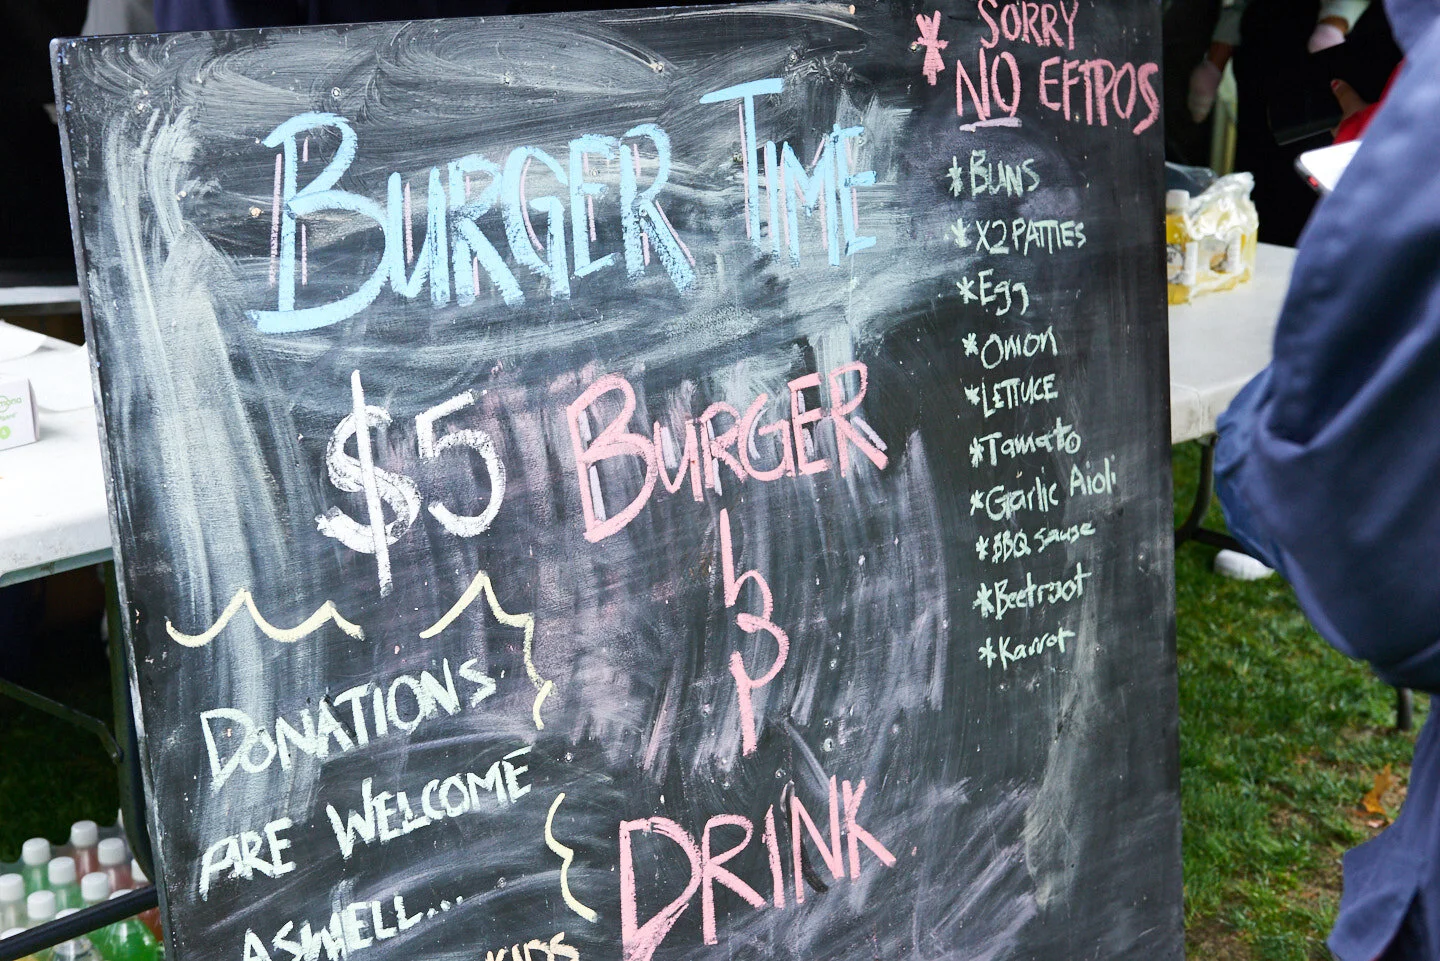 BURGER TIME
$5 BURGER
&
DRINK
DONATIONS
ARE WELCOME
ASWELL...
KIDS
* SORRY
NO EFTPOS
*BUNS
*X2 PATTIES
*Egg
*Onion
*LETTUCE
*Tamato
*Garlic Aioli
*BBQ Sause
*Beetroot
*Karrot